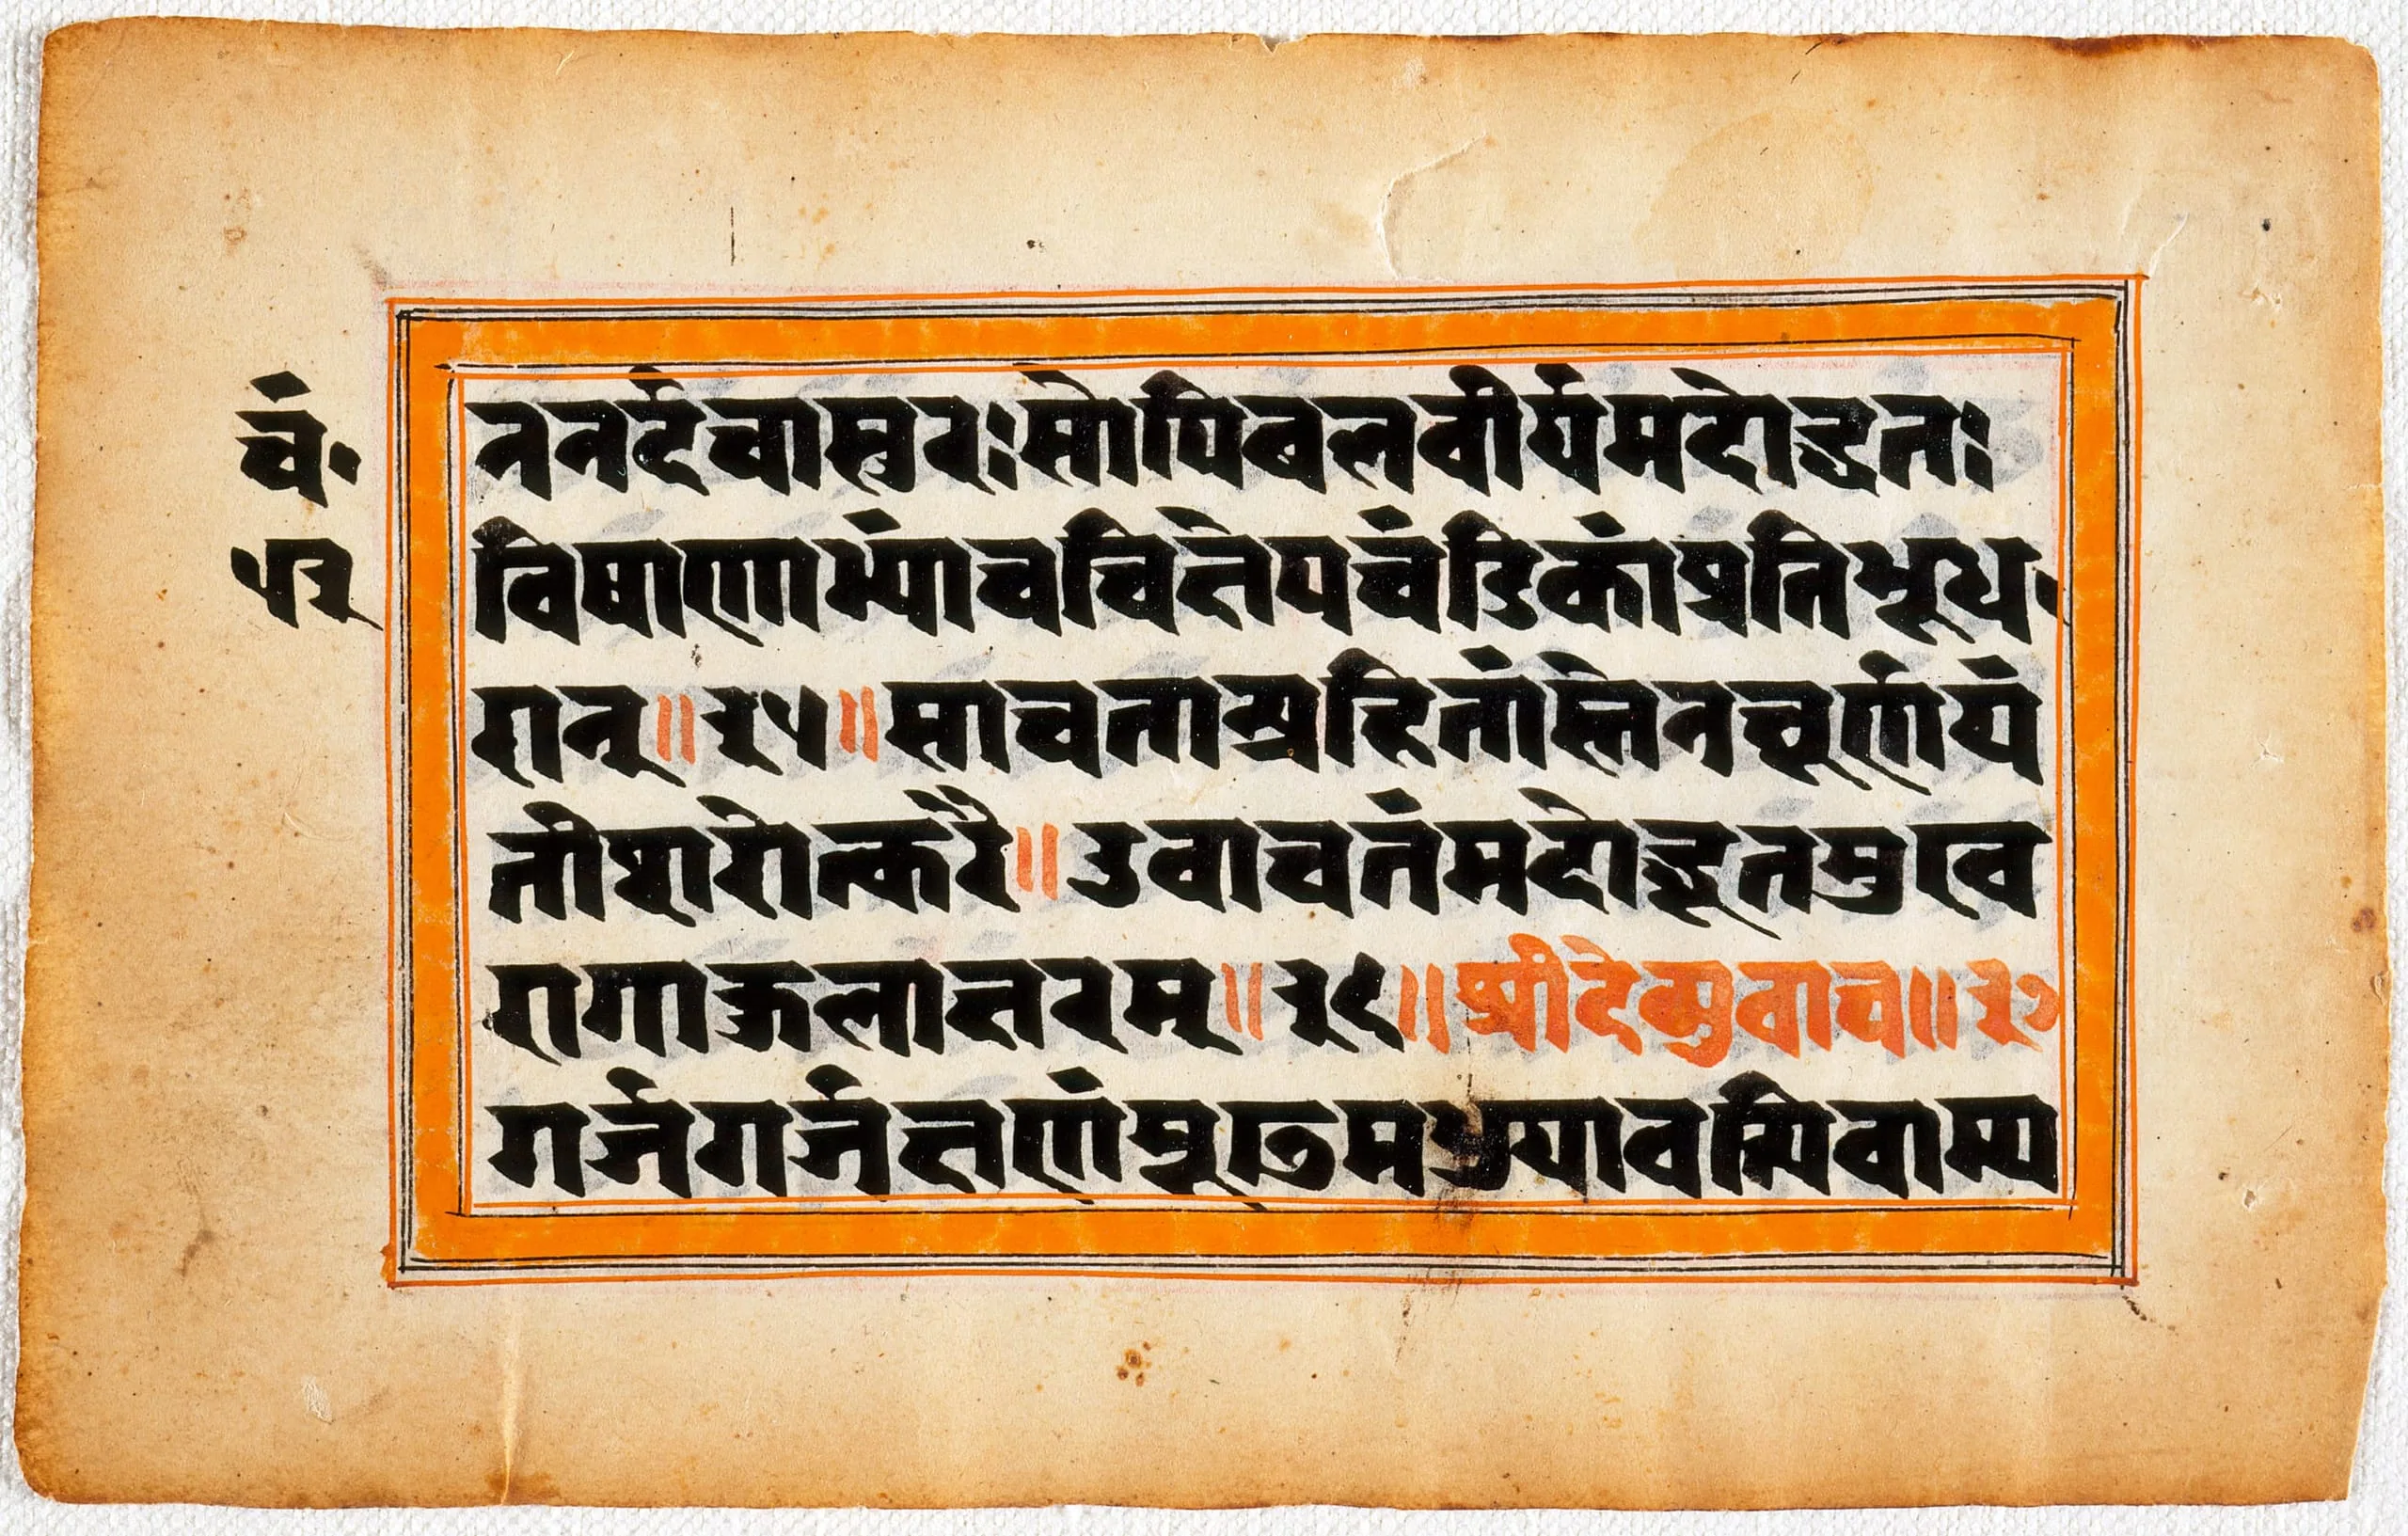 चं॰
५२
ननर्दचासुरःसोपिबलवीर्यमदोद्धतः
विषाणाभ्यांचचिक्षेपचंडिकांप्रतिभूध
रान्॥३५॥साचतान्प्रहितांस्तेनचूर्णयं
तीशरोत्करै॥उवाचतंमदोद्धूतमुखवे
रागाकुलाक्षरम्॥३६॥श्रीदेव्युवाच॥३७
गर्जगर्जक्षणंमूढमधुयावत्पिबाम्य